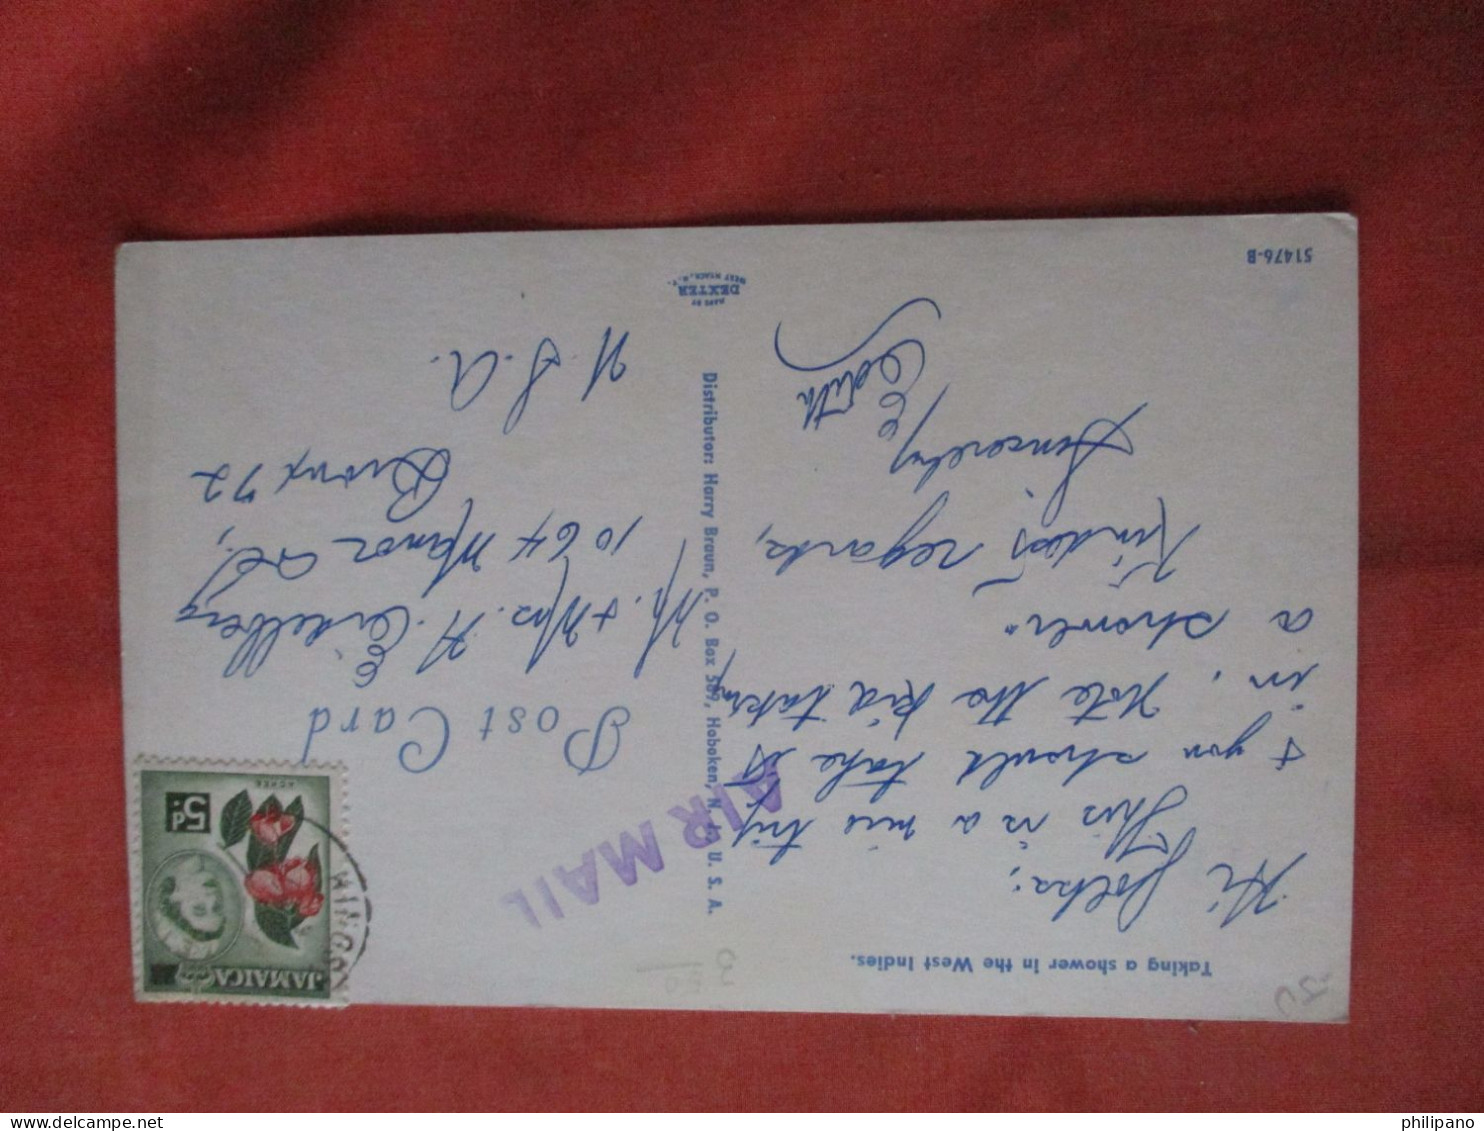 Taking a shower in the West Indies.
Hi folks;
This is a nice trip
& you should take it
in. Note the kid taking
a shower.
Kindest regards,
Sincerely,
Edith
51476-B
Distributor: Harry Braun, P. O. Box 569, Hoboken, N. J. U. S. A.
MADE BY
DEXTER
WEST NYACK, N. Y.
AIR MAIL
Post Card
Mr. & Mrs. H. Eidelberg
1064 Manor
Bronx 72
U.S.A.
JAMAICA
5d
ACKEE
KINGS
philipano
philipano.com